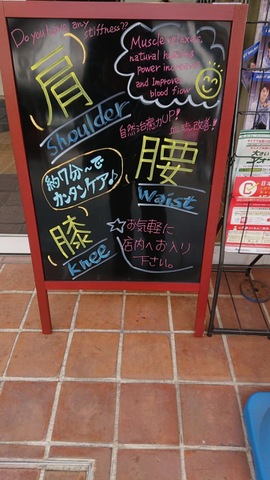 Do you have any stiffness??
肩
Shoulder
Muscle relaxes,
natural healing
power increases
and Improve
blood flow
自然治癒力UP!
血流改善!!
腰
Waist
約7分〜で
カンタンケア♪
膝
Knee
☆お気軽に
店内へお入り
下さい。